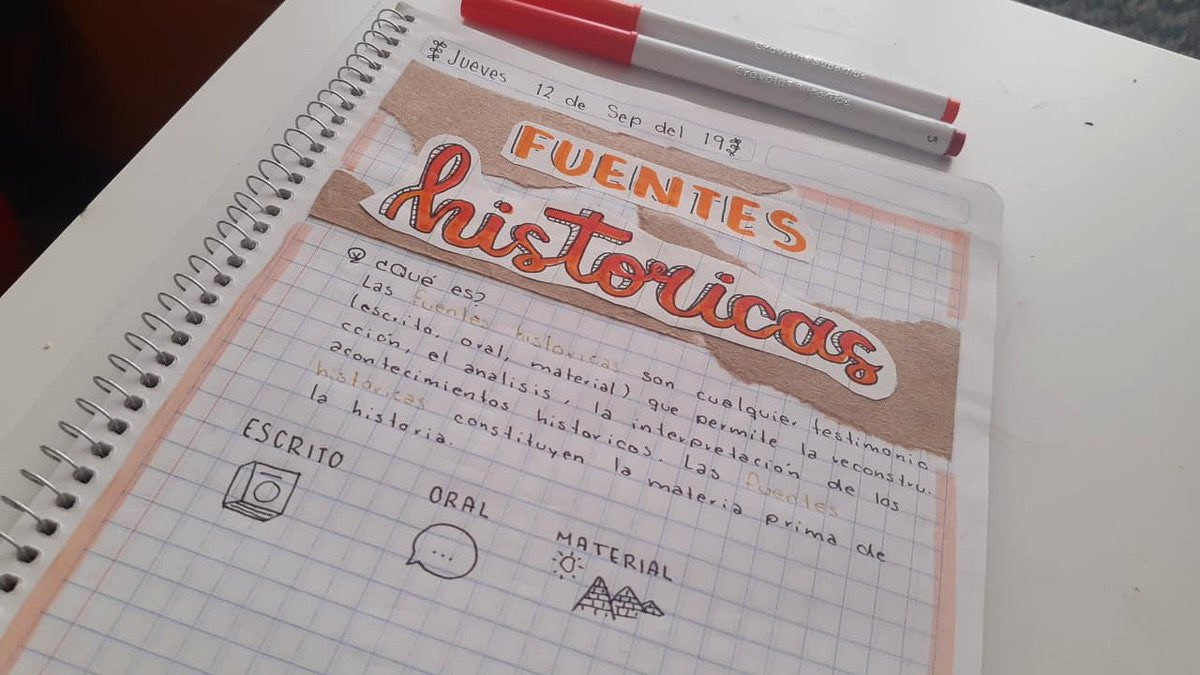 Jueves 12 de Sep del 19
FUENTES
historicas
¿Qué es?
Las fuentes historicas son cualquier testimonio
(escrito, oral, material) que permite la reconstru-
cción, el analisis, la interpretación de los
acontecimientos historicos. Las fuentes
históricas constituyen la materia prima de
la historia.
ESCRITO
ORAL
MATERIAL
Crayola
Crayola